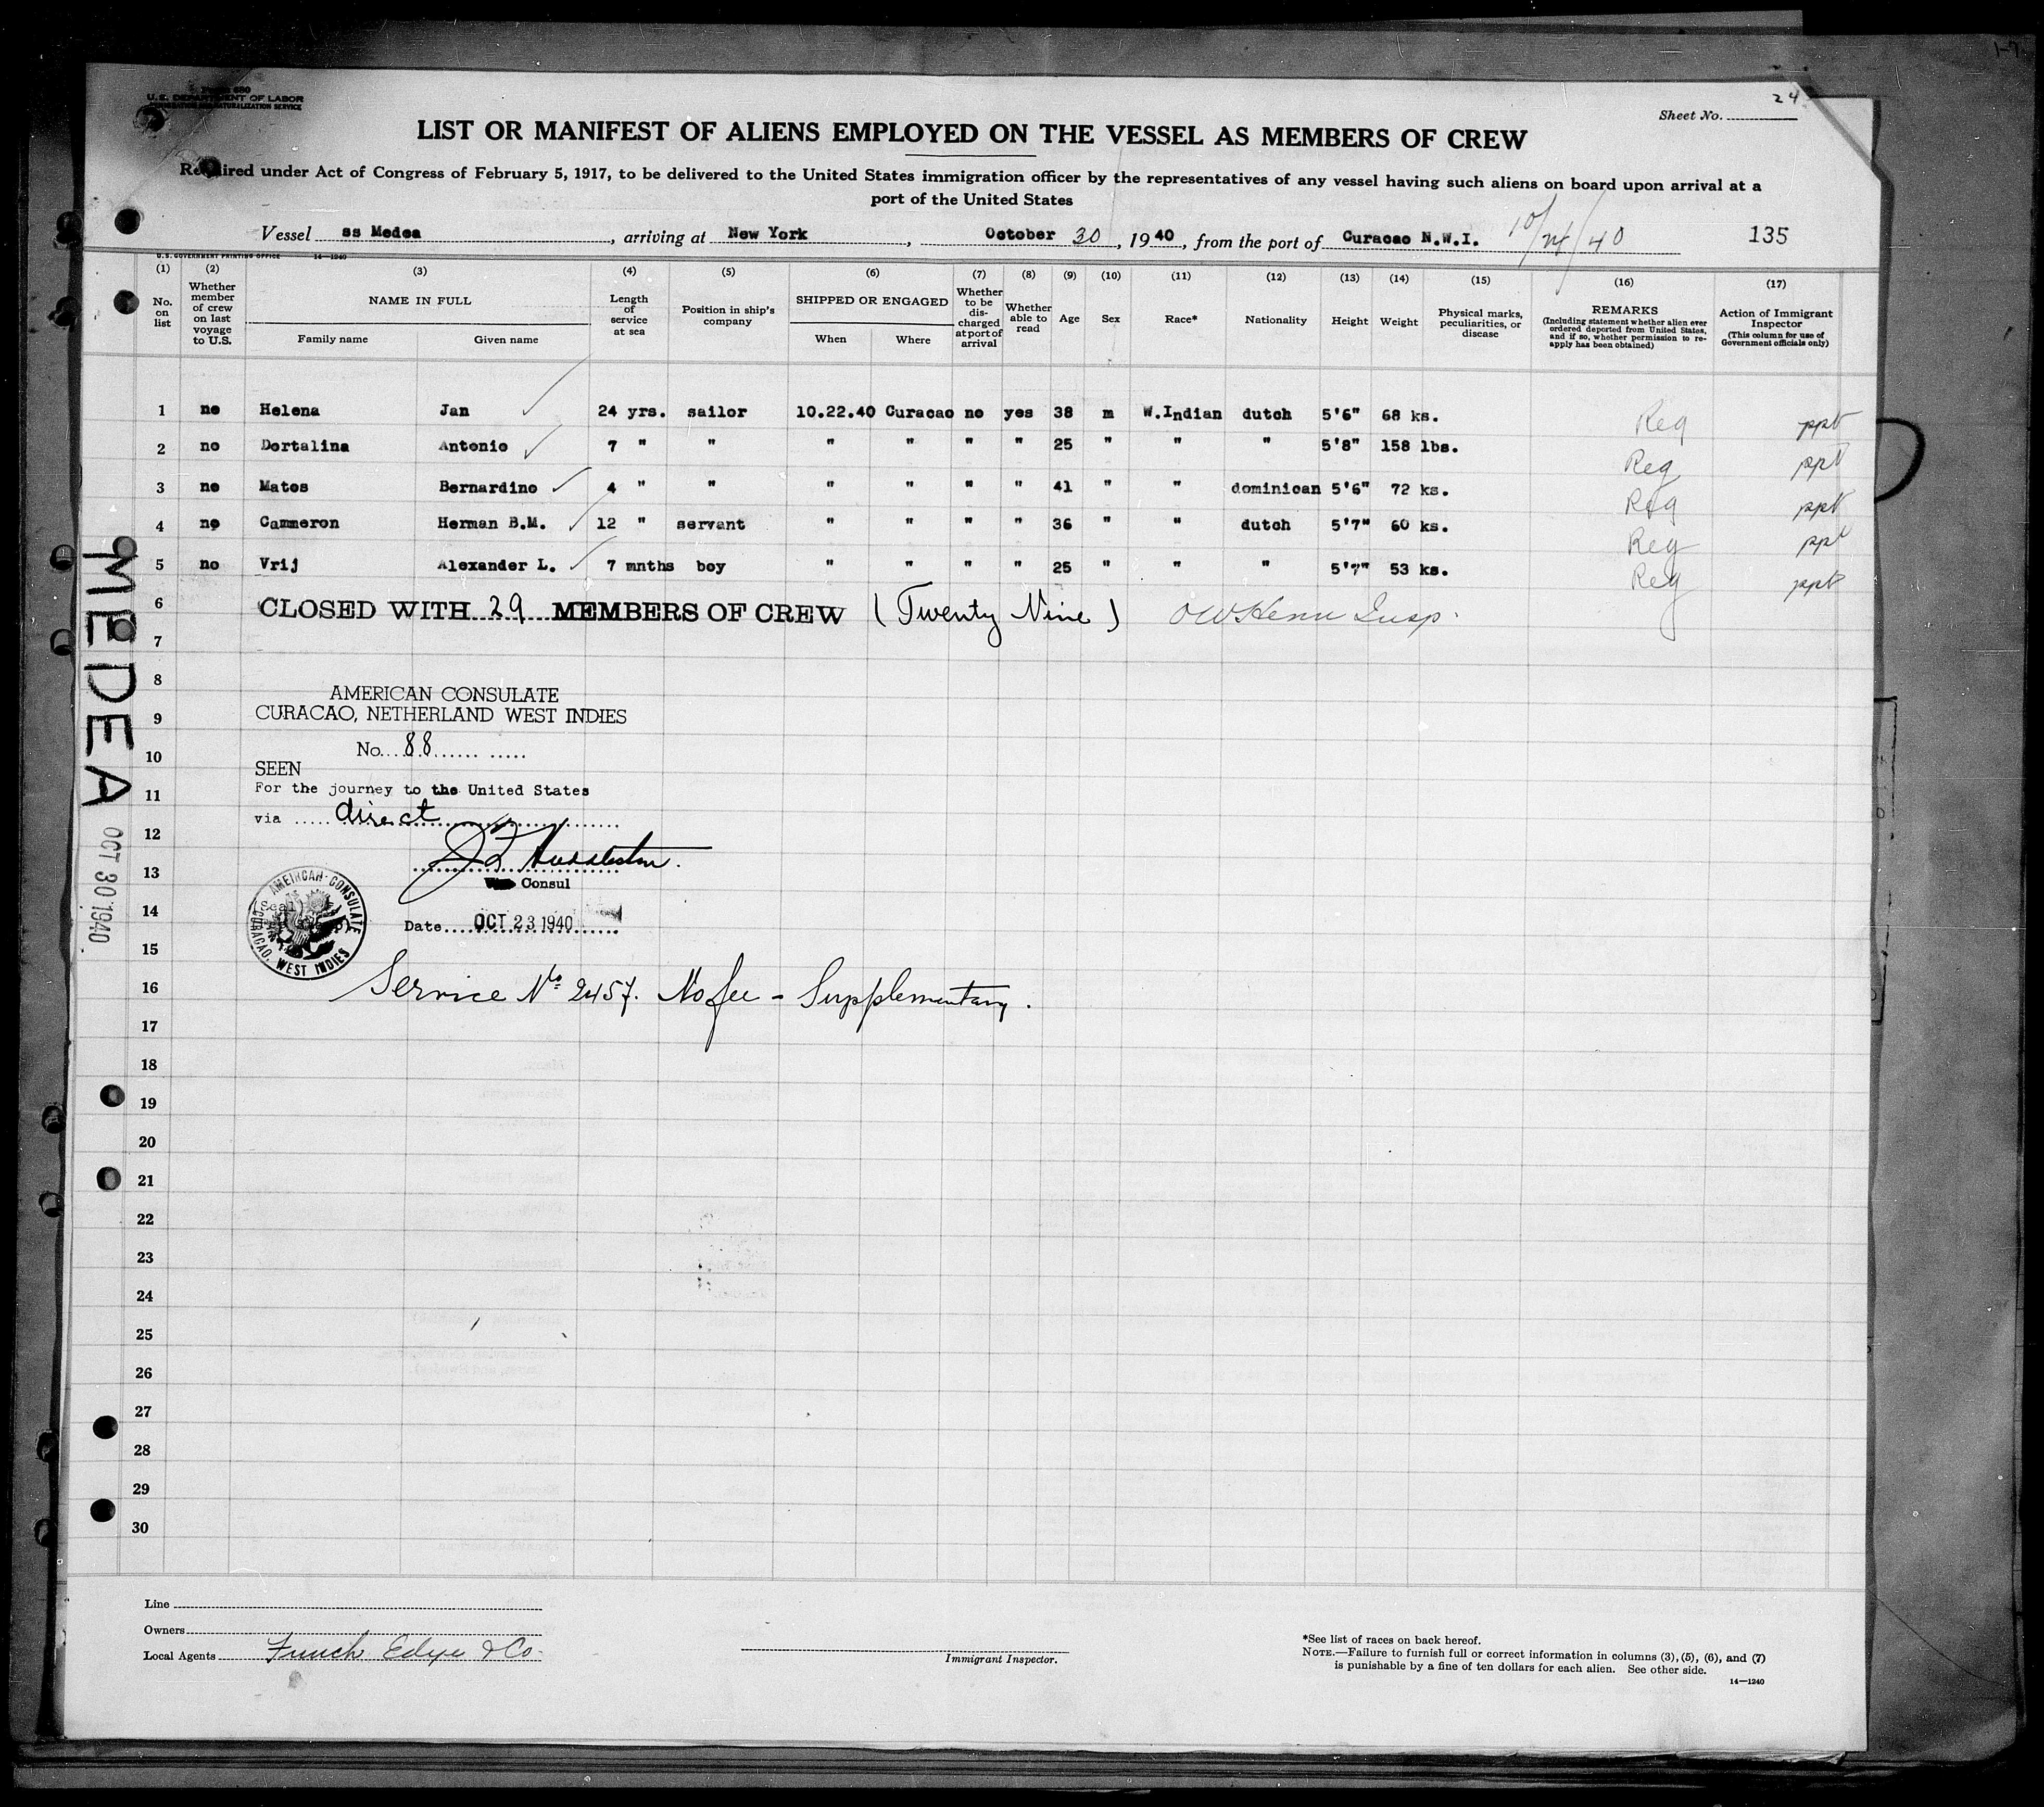 1-7
Form 680
U. S. DEPARTMENT OF LABOR
IMMIGRATION AND NATURALIZATION SERVICE
24
Sheet No.
LIST OR MANIFEST OF ALIENS EMPLOYED ON THE VESSEL AS MEMBERS OF CREW
Required under Act of Congress of February 5, 1917, to be delivered to the United States immigration officer by the representatives of any vessel having such aliens on board upon arrival at a
port of the United States
Vessel ss Medea, arriving at New York, October 30, 1940, from the port of Curacao N.W.I. 10/24/40 135
U.S. GOVERNMENT PRINTING OFFICE 14—1240
(1) (2) (3) (4) (5) (6) (7) (8) (9) (10) (11) (12) (13) (14) (15) (16) (17)
No. on list
Whether member of crew on last voyage to U.S.
NAME IN FULL
Family name Given name
Length of service at sea
Position in ship's company
SHIPPED OR ENGAGED
When Where
Whether to be discharged at port of arrival
Whether able to read
Age
Sex
Race*
Nationality
Height
Weight
Physical marks, peculiarities, or disease
REMARKS
(Including statement whether alien ever ordered deported from United States, and if so, whether permission to re-apply has been obtained)
Action of Immigrant Inspector
(This column for use of Government officials only)
1 no Helena Jan 24 yrs. sailor 10.22.40 Curacao no yes 38 m W.Indian dutch 5'6" 68 ks. Reg ppt
2 no Dortalina Antonio 7 " " " " " " 25 " " " 5'8" 158 lbs. Reg ppt
3 no Matos Bernardino 4 " " " " " " 41 " " dominican 5'6" 72 ks. Reg ppt
4 no Cammeron Herman B.M. 12 " servant " " " " 36 " " dutch 5'7" 60 ks. Reg ppt
5 no Vrij Alexander L. 7 mnths boy " " " " 25 " " " 5'7" 53 ks. Reg ppt
6 CLOSED WITH 29 MEMBERS OF CREW (Twenty Nine) Insp.
7
8
AMERICAN CONSULATE
9 CURACAO, NETHERLAND WEST INDIES
No. 88
10
SEEN
11 For the journey to the United States
via direct
12
13
Consul
14
Date OCT 23 1940
AMERICAN CONSULATE
CURACAO, WEST INDIES
15
16 Service No 2457. No fee - Supplementary.
17
18
19
20
21
22
23
24
25
26
27
28
29
30
MEDEA
OCT 30 1940
Line
Owners
Local Agents Funch Edye & Co.
Immigrant Inspector.
*See list of races on back hereof.
NOTE.—Failure to furnish full or correct information in columns (3), (5), (6), and (7)
is punishable by a fine of ten dollars for each alien. See other side.
14—1240